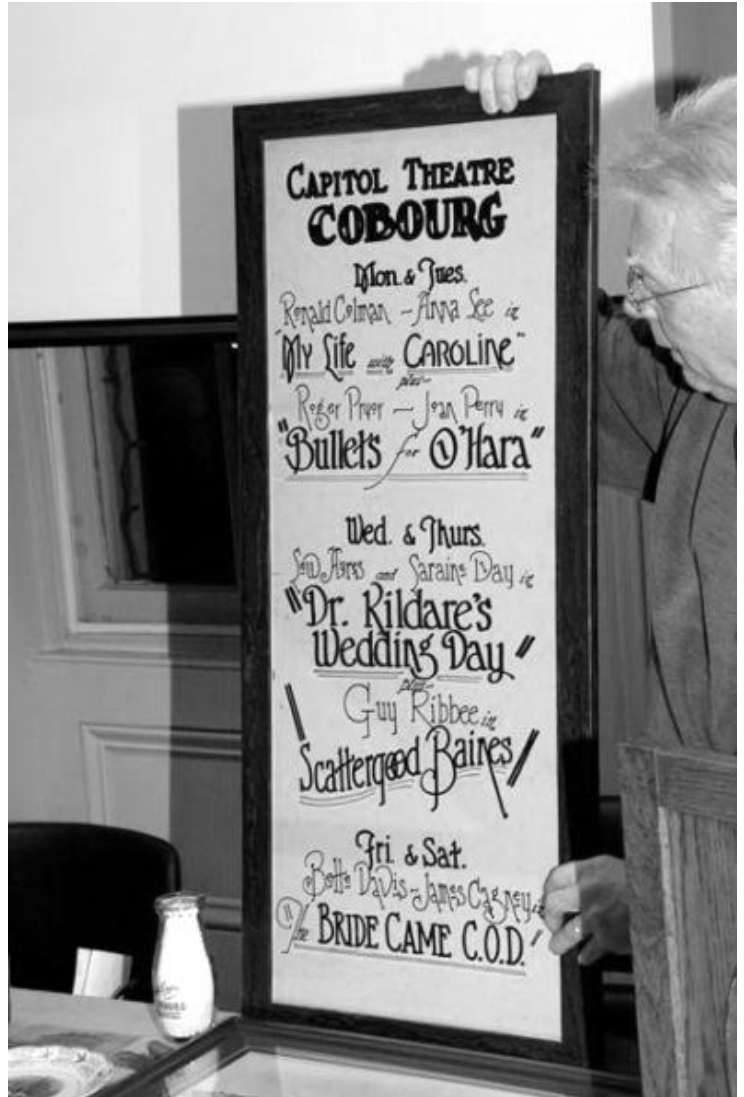 CAPITOL THEATRE
COBOURG
Mon. & Tues.
Ronald Colman - Anna Lee in
"My Life with CAROLINE"
plus-
Roger Pryor - Joan Perry in
"Bullets for O'Hara"
Wed. & Thurs.
Lew Ayres and Laraine Day in
"Dr. Kildare's
Wedding Day"
plus-
Guy Kibbee in
"Scattergood Baines"
Fri. & Sat.
Bette Davis - James Cagney in
"The BRIDE CAME C.O.D."